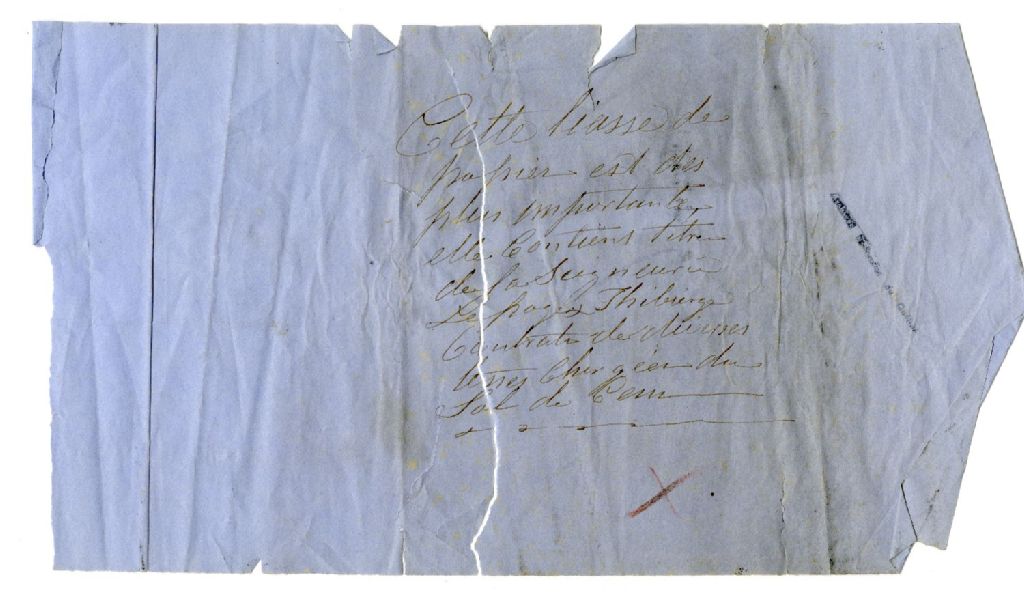 Cette liasse de
papier est des
plus importante
elle Contiens titre
de la Seigneurie
Le page & Thibierge
Contrats de diverses
terres Chargées du
Sol de Cens